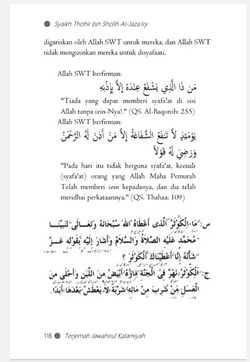 Syaikh Thohir bin Sholih Al-Jaza'iry
digariskan oleh Allah SWT untuk mereka, dan Allah SWT
tidak mengizinkan mereka untuk disyafaati.
Allah SWT berfirman:
مَن ذَا الَّذِي يَشْفَعُ عِندَهُ إِلاَّ بِإِذْنِهِ
"Tiada yang dapat memberi syafa'at di sisi
Allah tanpa izin-Nya". (QS. Al-Baqoroh: 255)
Allah SWT berfirman:
يَوْمَئِذٍ لاَّ تَنفَعُ الشَّفَاعَةُ إِلاَّ مَنْ أَذِنَ لَهُ الرَّحْمَنُ
وَرَضِيَ لَهُ قَوْلاً
"Pada hari itu tidak berguna syafa'at, kecuali
(syafa'at) orang yang Allah Maha Pemurah
Telah memberi izin kepadanya, dan dia telah
meridhai perkataannya." (QS. Thahaa: 109)
س: مَا الْكَوْثَرُ الَّذِى أَعْطَاهُ اللهُ سُبْحَانَهُ وَتَعَالَى لِنَبِيِّنَا
مُحَمَّدٍ عَلَيْهِ الصَّلاَةُ وَالسَّلاَمُ وَأَشَارَ إِلَيْهِ بِقَوْلِهِ عَزَّ
شَأْنُهُ إِنَّا أَعْطَيْنَاكَ الْكَوْثَرَ؟
ج: الْكَوْثَرُ نَهْرٌ فِى الْجَنَّةِ مَاؤُهُ أَبْيَضُ مِنَ اللَّبَنِ وَأَحْلَى مِنَ
الْعَسَلِ مَنْ شَرِبَ مِنْ مَائِهِ شَرْبَةً لاَ يَعْطَشُ بَعْدَهَا أَبَدًا.
118 Terjemah Jawahirul Kalamiyah